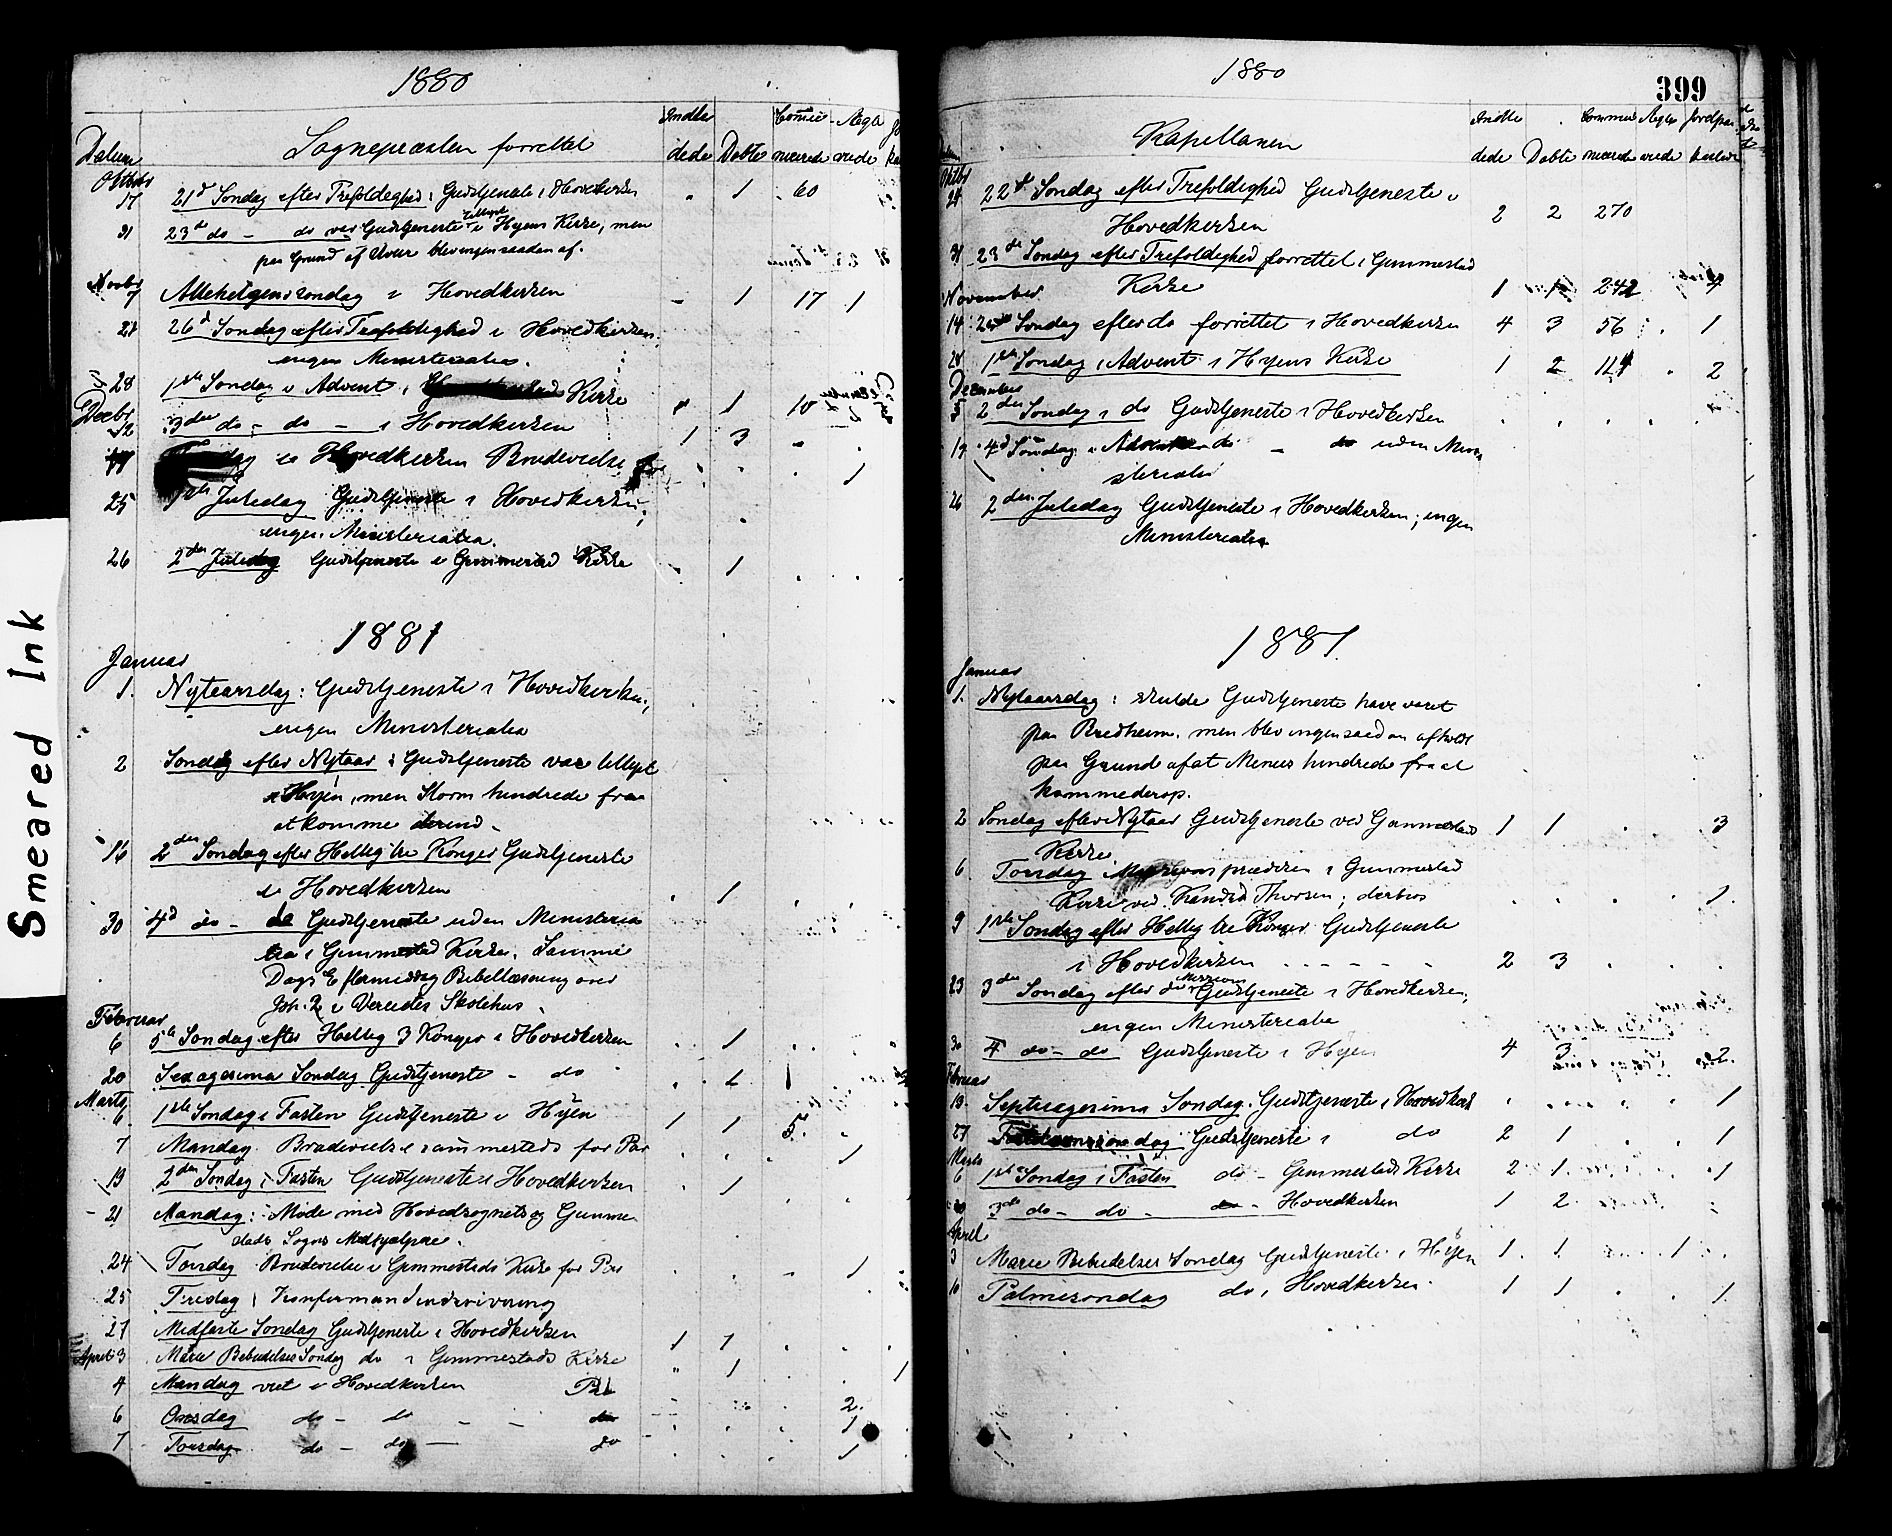 Smeared Ink
1880
Datum Sognepræsten forrettet Indle dede Døbte Commu nicerede Ægte viede
Oktbr
17 21d Søndag efter Trefoldighed: Gudstjeneste i Hovedkirken " 1 60
31 23de do - do var Gudstjeneste tillyst i Hyens Kirke, men
paa Grund af Uveir blev ingen saadan af.
Novbr
7 Allehelgenssøndag i Hovedkirken - 1 17 1
21 26d Søndag efter Trefoldighed i Hovedkirken
ingen Ministerialia.
28 1ste Søndag i Advent i Kirke " 1 10
Decbr
12 3die do - do - i Hovedkirken 1 3
i Hovedkirken Brudevielse 1
25 1ste Juledag Gudstjeneste i Hovedkirken;
ingen Ministerialia.
26 2den Juledag Gudstjeneste i Gimmestad Kirke 1
1881
Januar
1. Nytaarsdag: Gudstjeneste i Hovedkirken;
ingen Ministerialia
2 Søndag efter Nytaar: Gudstjeneste var tillyst
i Hyen, men Storm hindrede fra
at komme derind.
16 2den Søndag efter Hellig tre Konger Gudstjeneste
i Hovedkirken 1
30 4d do - do Gudstjeneste uden Ministeria
lia i Gimmestad Kirke. Samme
Dags Eftermiddag Bibellæsning over
Joh. 2 i Vereides Skolehus.
Februar
6 5te Søndag efter Hellig 3 Konger i Hovedkirken 1
20 Sexagesima Søndag Gudstjeneste - do
Marts
6. 1ste Søndag i Fasten Gudstjeneste i Hyen 1 1 5
7 Mandag Brudevielse sammesteds for Par 1
13 2den Søndag i Fasten Gudstjeneste i Hovedkirken 1
21 Mandag: Møde med Hovedsognets og Gimme
stads Sogns Medhjælpere.
24 Torsdag Brudevielse i Gimmestads Kirke for Par 1
25 Fredag Konfirmandindskrivning
27 Midfaste Søndag Gudstjeneste i Hovedkirken 1 1
April 3 Marie Bebudelses Søndag do i Gimmestads Kirke " 1 1
4 Mandag viet i Hovedkirken Par 2
6 Onsdag do - do - - do 1
7 Torsdag do - do - do 1
1880
399
Kapellanen Indle dede Døbte Commu nicerede Ægte viede
Oktbr
24 22d Søndag efter Trefoldighed Gudstjeneste i
Hovedkirken 2 2 270
31 23de Søndag efter Trefoldighed forrettet i Gimmestad
Kirke 1 1 242
November
14 Søndag efter do forrettet i Hovedkirken 4 3 56 1
28 1ste Søndag i Advent i Hyens Kirke 1 2 2
December
5 2den Søndag i do Gudstjeneste i Hovedkirken
19 4d Søndag i Advent do - do uden Mini
sterialia
26 2den Juledag Gudstjeneste i Hovedkirken; ingen
Ministerialia
1881.
Januar
1. Nytaarsdag: skulde Gudstjeneste have været
paa Bredheim, men blev ingen saadan afholdt
paa Grund af at Menis hindrede fra at
komme derop.
2 Søndag efter Nytaar Gudstjeneste ved Gimmestad
Kirke 1 1 3
6 Torsdag Missionsprædiken i Gimmestad
Kirke ved Kandid Thorsen; derhos 1
9 1ste Søndag efter Hellig tre Konger Gudstjeneste
i Hovedkirken 2 3
23 3die Søndag efter do Missions Gudstjeneste i Hovedkirken;
ingen Ministerialia
30 4 do - do Gudstjeneste i Hyen 4 3 2
Februar
13. Septuagesima Søndag. Gudstjeneste i Hovedkirk 1
27 Fastelavnssøndag Gudstjeneste i do 2 1 1
Marts
6 1ste Søndag i Fasten do - Gimmestads Kirke 2 1 1
20 3die do - do - do - Hovedkirken 1 2
April
3 Marie Bebudelses Søndag Gudstjeneste i Hyen 1 1 1
10 Palmesøndag do i Hovedkirken 1 1 1